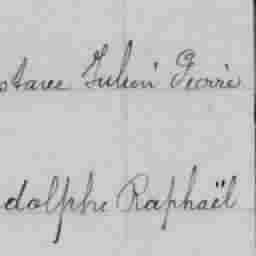 stave Julien Pierre
dolphe Raphaël